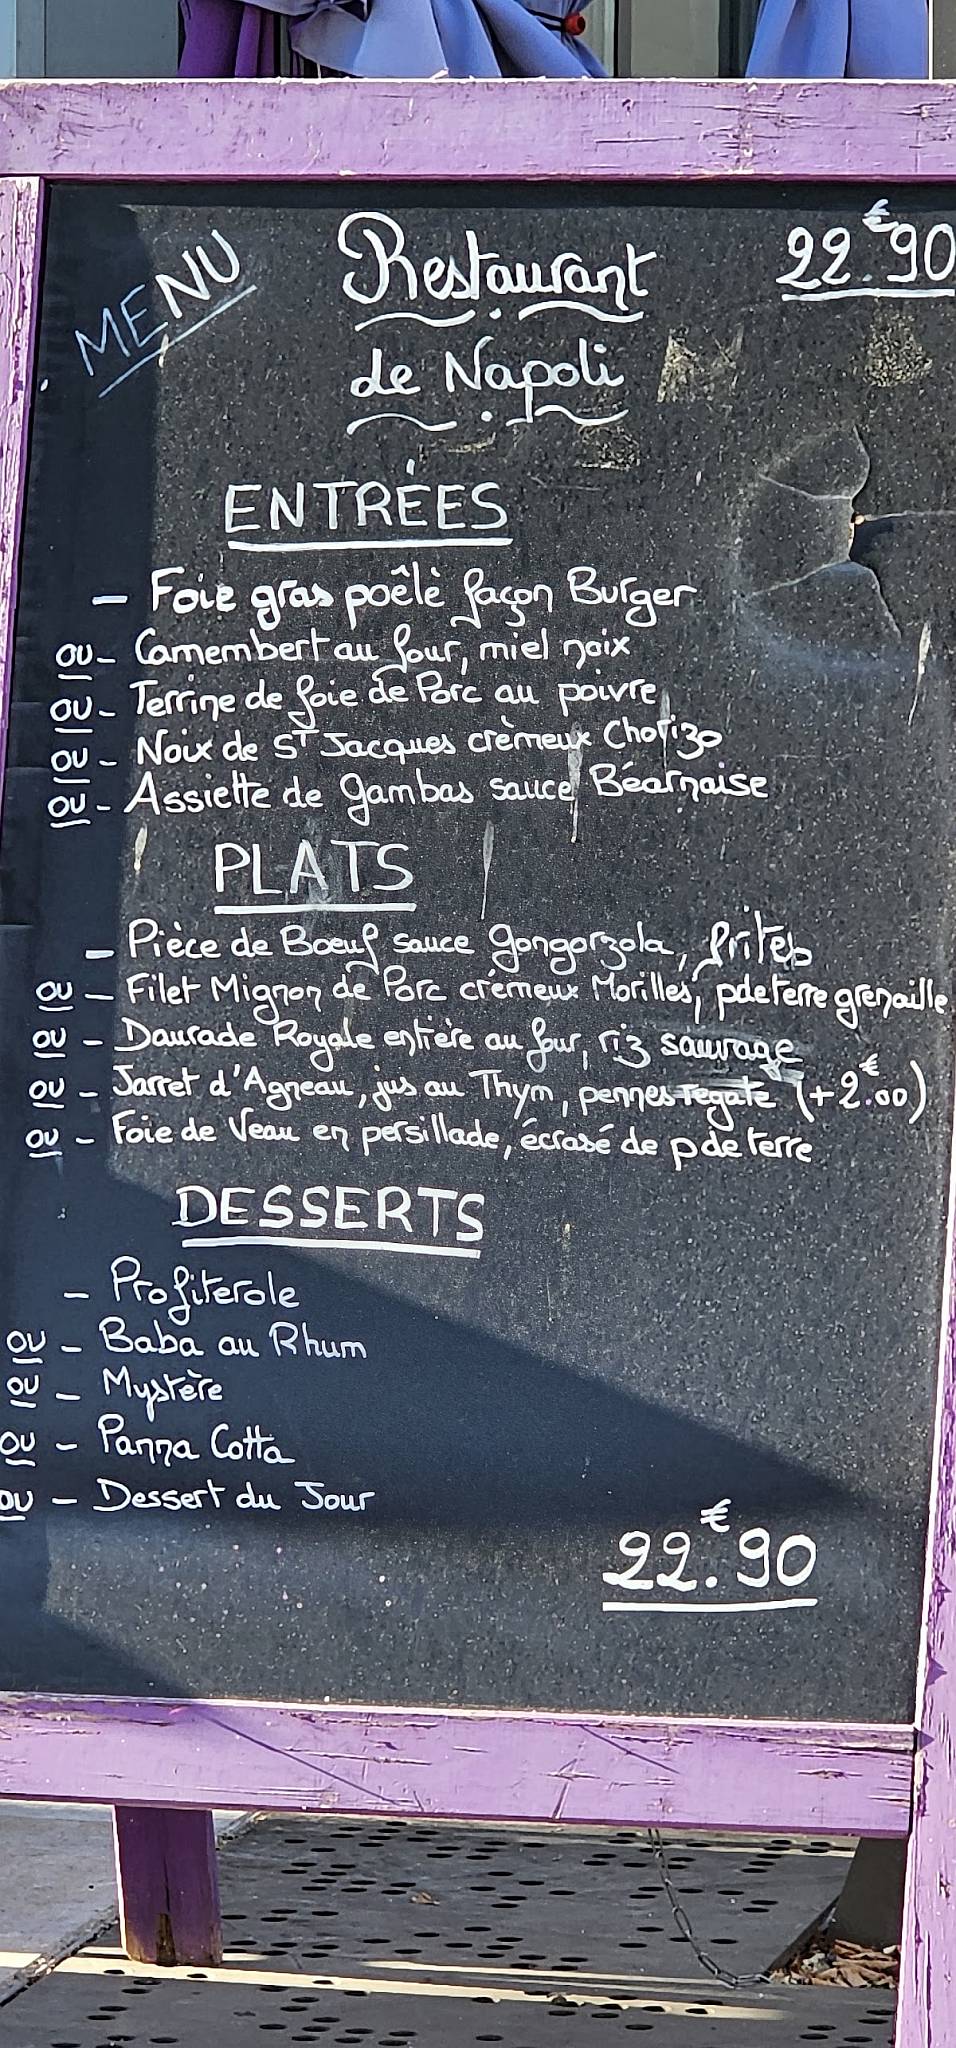 MENU
Restaurant
de Napoli
22.€90
ENTRÉES
- Foie gras poêlè façon Burger
OU - Camembert au four, miel noix
OU - Terrine de foie de Porc au poivre
OU - Noix de ST Jacques crèmeux Chorizo
OU - Assiette de gambas sauce Béarnaise
PLATS
- Pièce de Boeuf sauce gongorzola, frites
OU - Filet Mignon de Porc crémeux Morilles, p de terre grenaille
OU - Daurade Royale entière au four, riz sauvage
OU - Jarret d'Agneau, jus au Thym, pennes regate (+2.€00)
OU - Foie de Veau en persillade, écrasé de p de terre
DESSERTS
- Profiterole
OU - Baba au Rhum
OU - Mystère
OU - Panna Cotta
OU - Dessert du Jour
22.€90